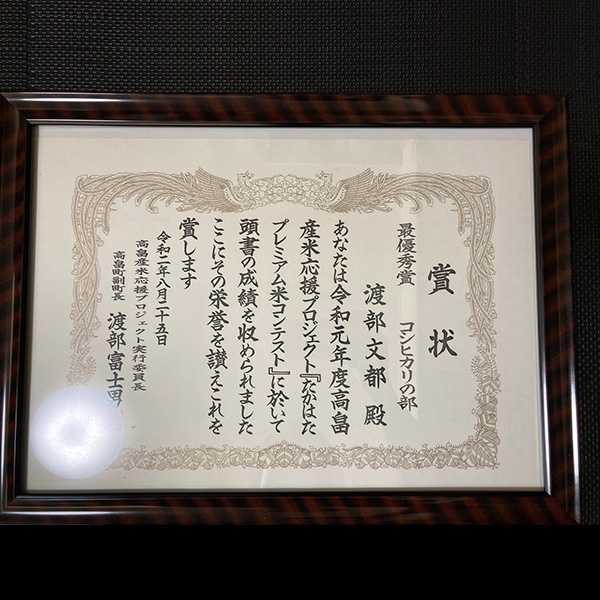 賞状
最優秀賞 コシヒカリの部
渡部文都 殿
あなたは令和元年度高畠
産米応援プロジェクト『たかはた
プレミアム米コンテスト』に於いて
頭書の成績を収められました
ここにその栄誉を讃えこれを
賞します
令和二年八月二十五日
高畠産米応援プロジェクト実行委員長
高畠町副町長 渡部富士男